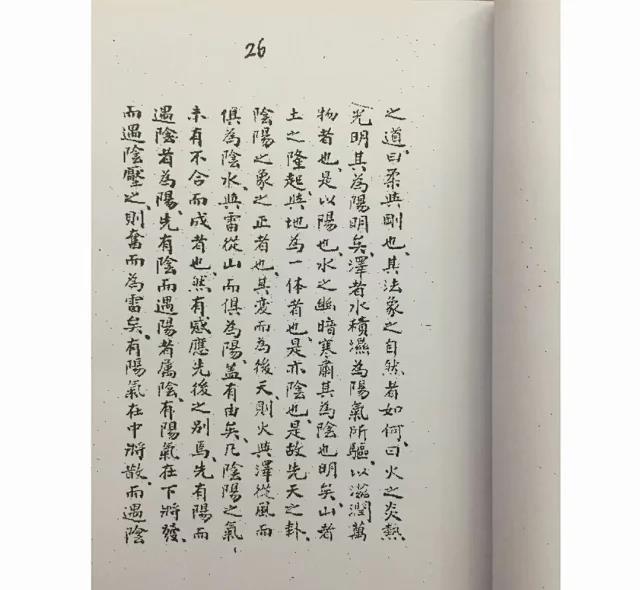 26
之道、曰柔與剛也、其法象之自然者如何、曰火之炎熱
光明其為陽明矣、澤者水積濕為陽氣所驅、以滋潤萬
物者也、是以陽也、水之幽暗寒肅其為陰也明矣、山者
土之隆起、與地為一体者也、是亦陰也是故先天之卦、
陰陽之象之正者也、其変而為後天、則火與澤從風而
俱為陰、水與雷從山而俱為陽、蓋有由矣、乃陰陽之氣
未有不合而成者也、然有感應先後之別焉、先有陽而
遇陰者為陽、先有陰而遇陽者属陰、有陽氣在下將發、
而遇陰壓之、則奮而為雷矣、有陽氣在中將散、而遇陰